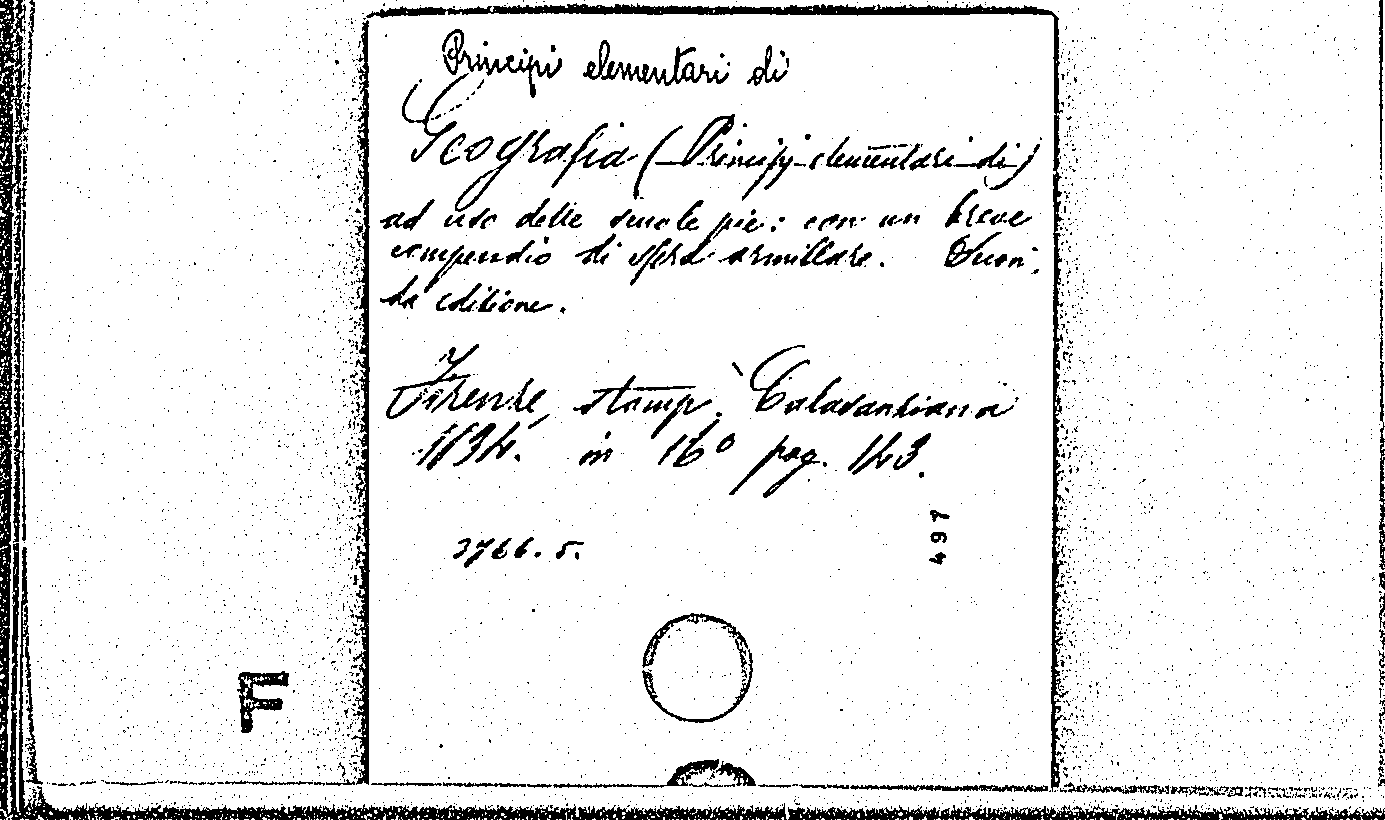 Principi elementari di
Geografia (Principj elementari di)
ad uso delle scuole pie: con un breve
compendio di sfera armillare.
da editione.
Firenze, stamp. Calasanziana
in 16° pag. 143.
3766. 5.
497
F